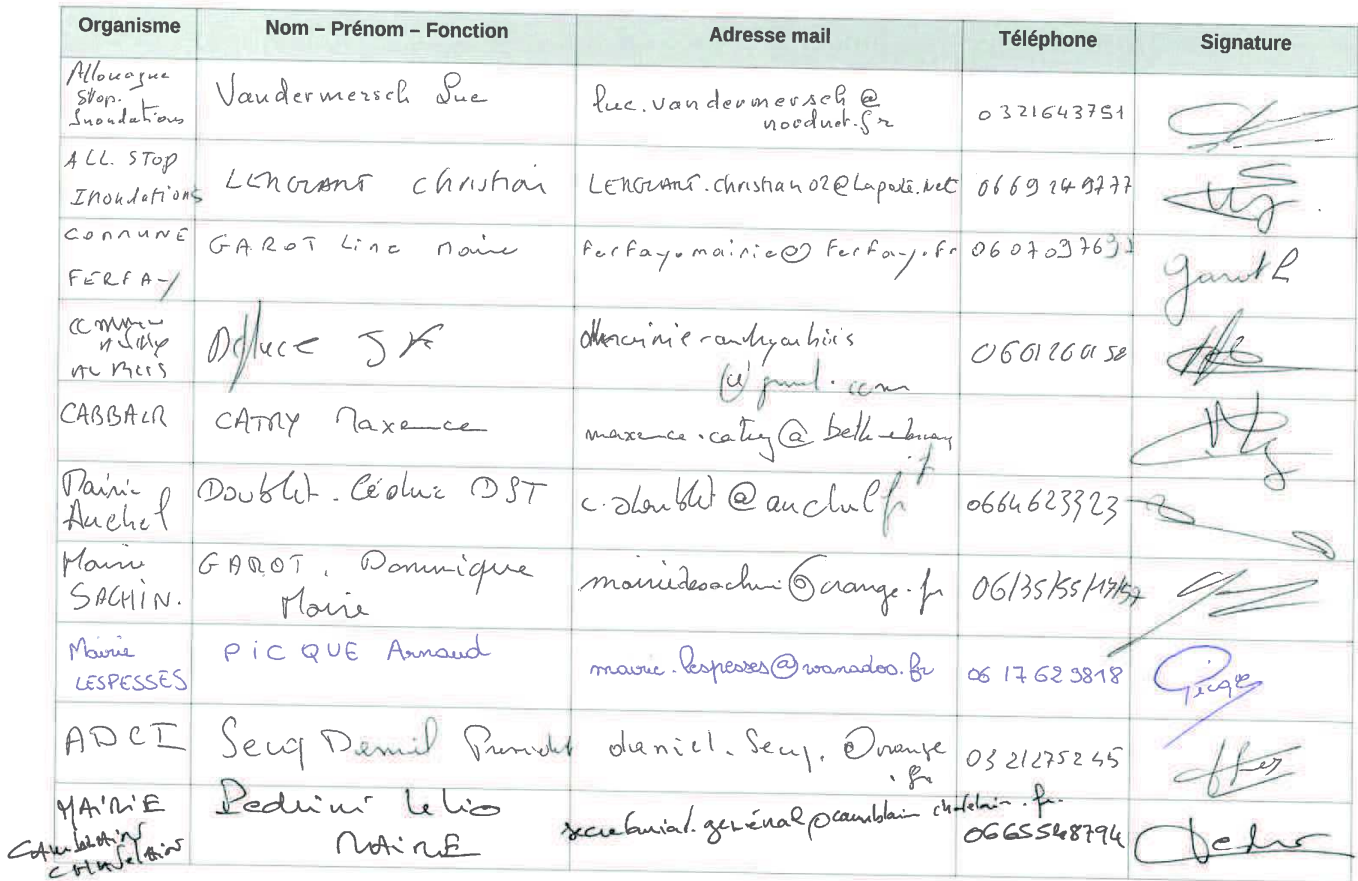 Organisme Nom – Prénom – Fonction Adresse mail Téléphone Signature
Allouagne
Stop.
Inondations
Vandermersch Luc
luc.vandermersch@
nordnet.fr
0321643751
ALL. STOP
Inondations
LENGRANT christian
LENGRANT.christian02@Laposte.Net
0669249777
COMMUNE
FERFAY
GAROT Line Maire
Ferfay.mairie@Ferfay.fr
Garot L
Commune
AU BOIS
Delluce JK
@gmail.com
06601260152
CABBALR
CATRY Maxence
maxence.catry@bethunebruay
.fr
Mairie
Auchel
Doublet. Cédric DST
c.doublet@auchel.fr
0664623323
Mairie
SACHIN.
GAROT. Dominique
Maire
mairiedesachin@orange.fr
06/35/55/17/57
Mairie
LESPESSES
PICQUE Arnaud
mairie.lespesses@wanadoo.fr
06 17 62 9818
Picque
ADCI
Secq Daniel Président
daniel.Secq.@orange
.fr
03 21275245
MAIRIE
CAMBLAIN
CHATELAIN
Pedrini Lelio
MAIRE
secretariat.general@camblain-chatelain.fr.
0665548794